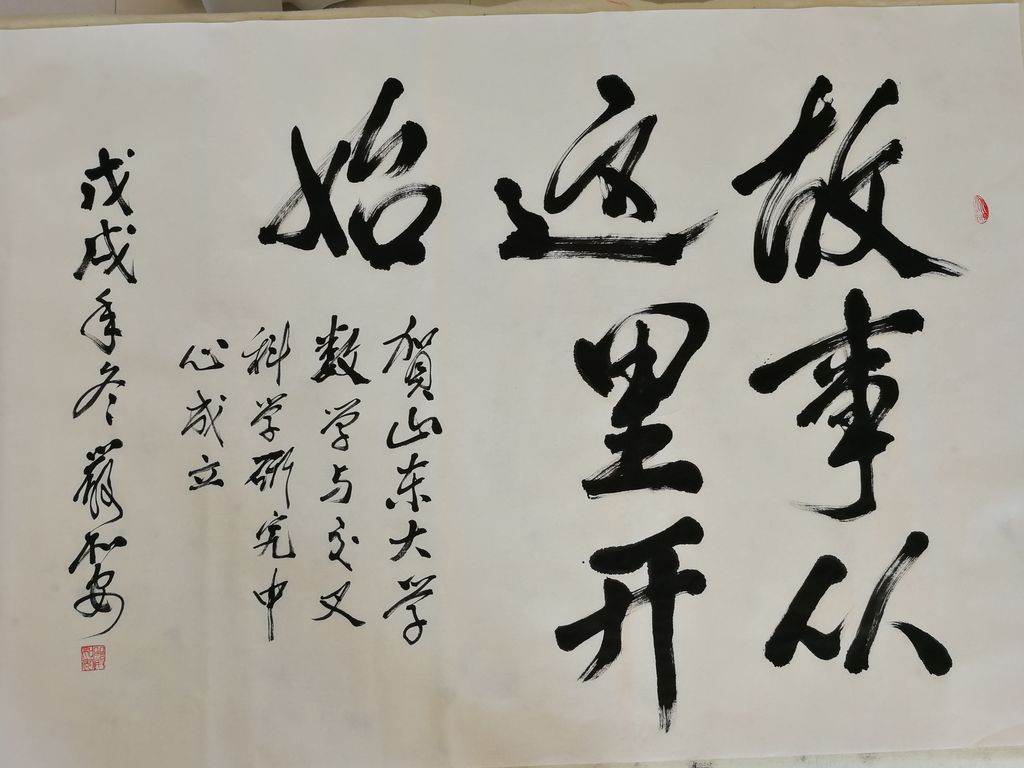 故事从
这里开
始
贺山东大学
数学与交叉
科学研究中
心成立
戊戌年冬严加安